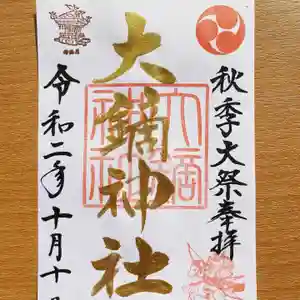 秋季大祭奉拝
大鏑神社
令和二年十月十